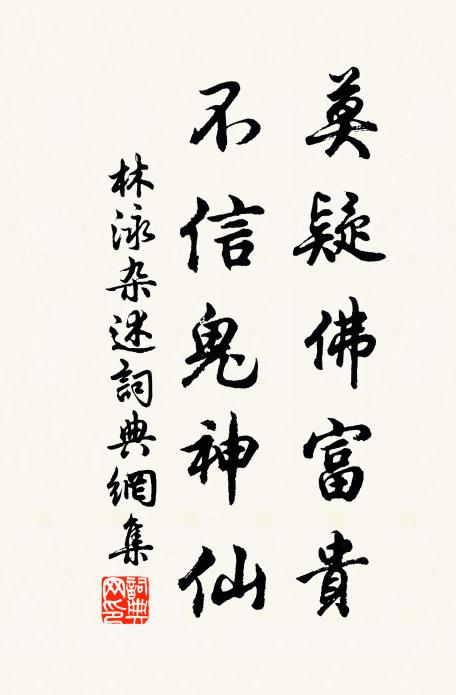 莫疑佛富貴
不信鬼神仙
林泳杂述詞典網集
詞典网印